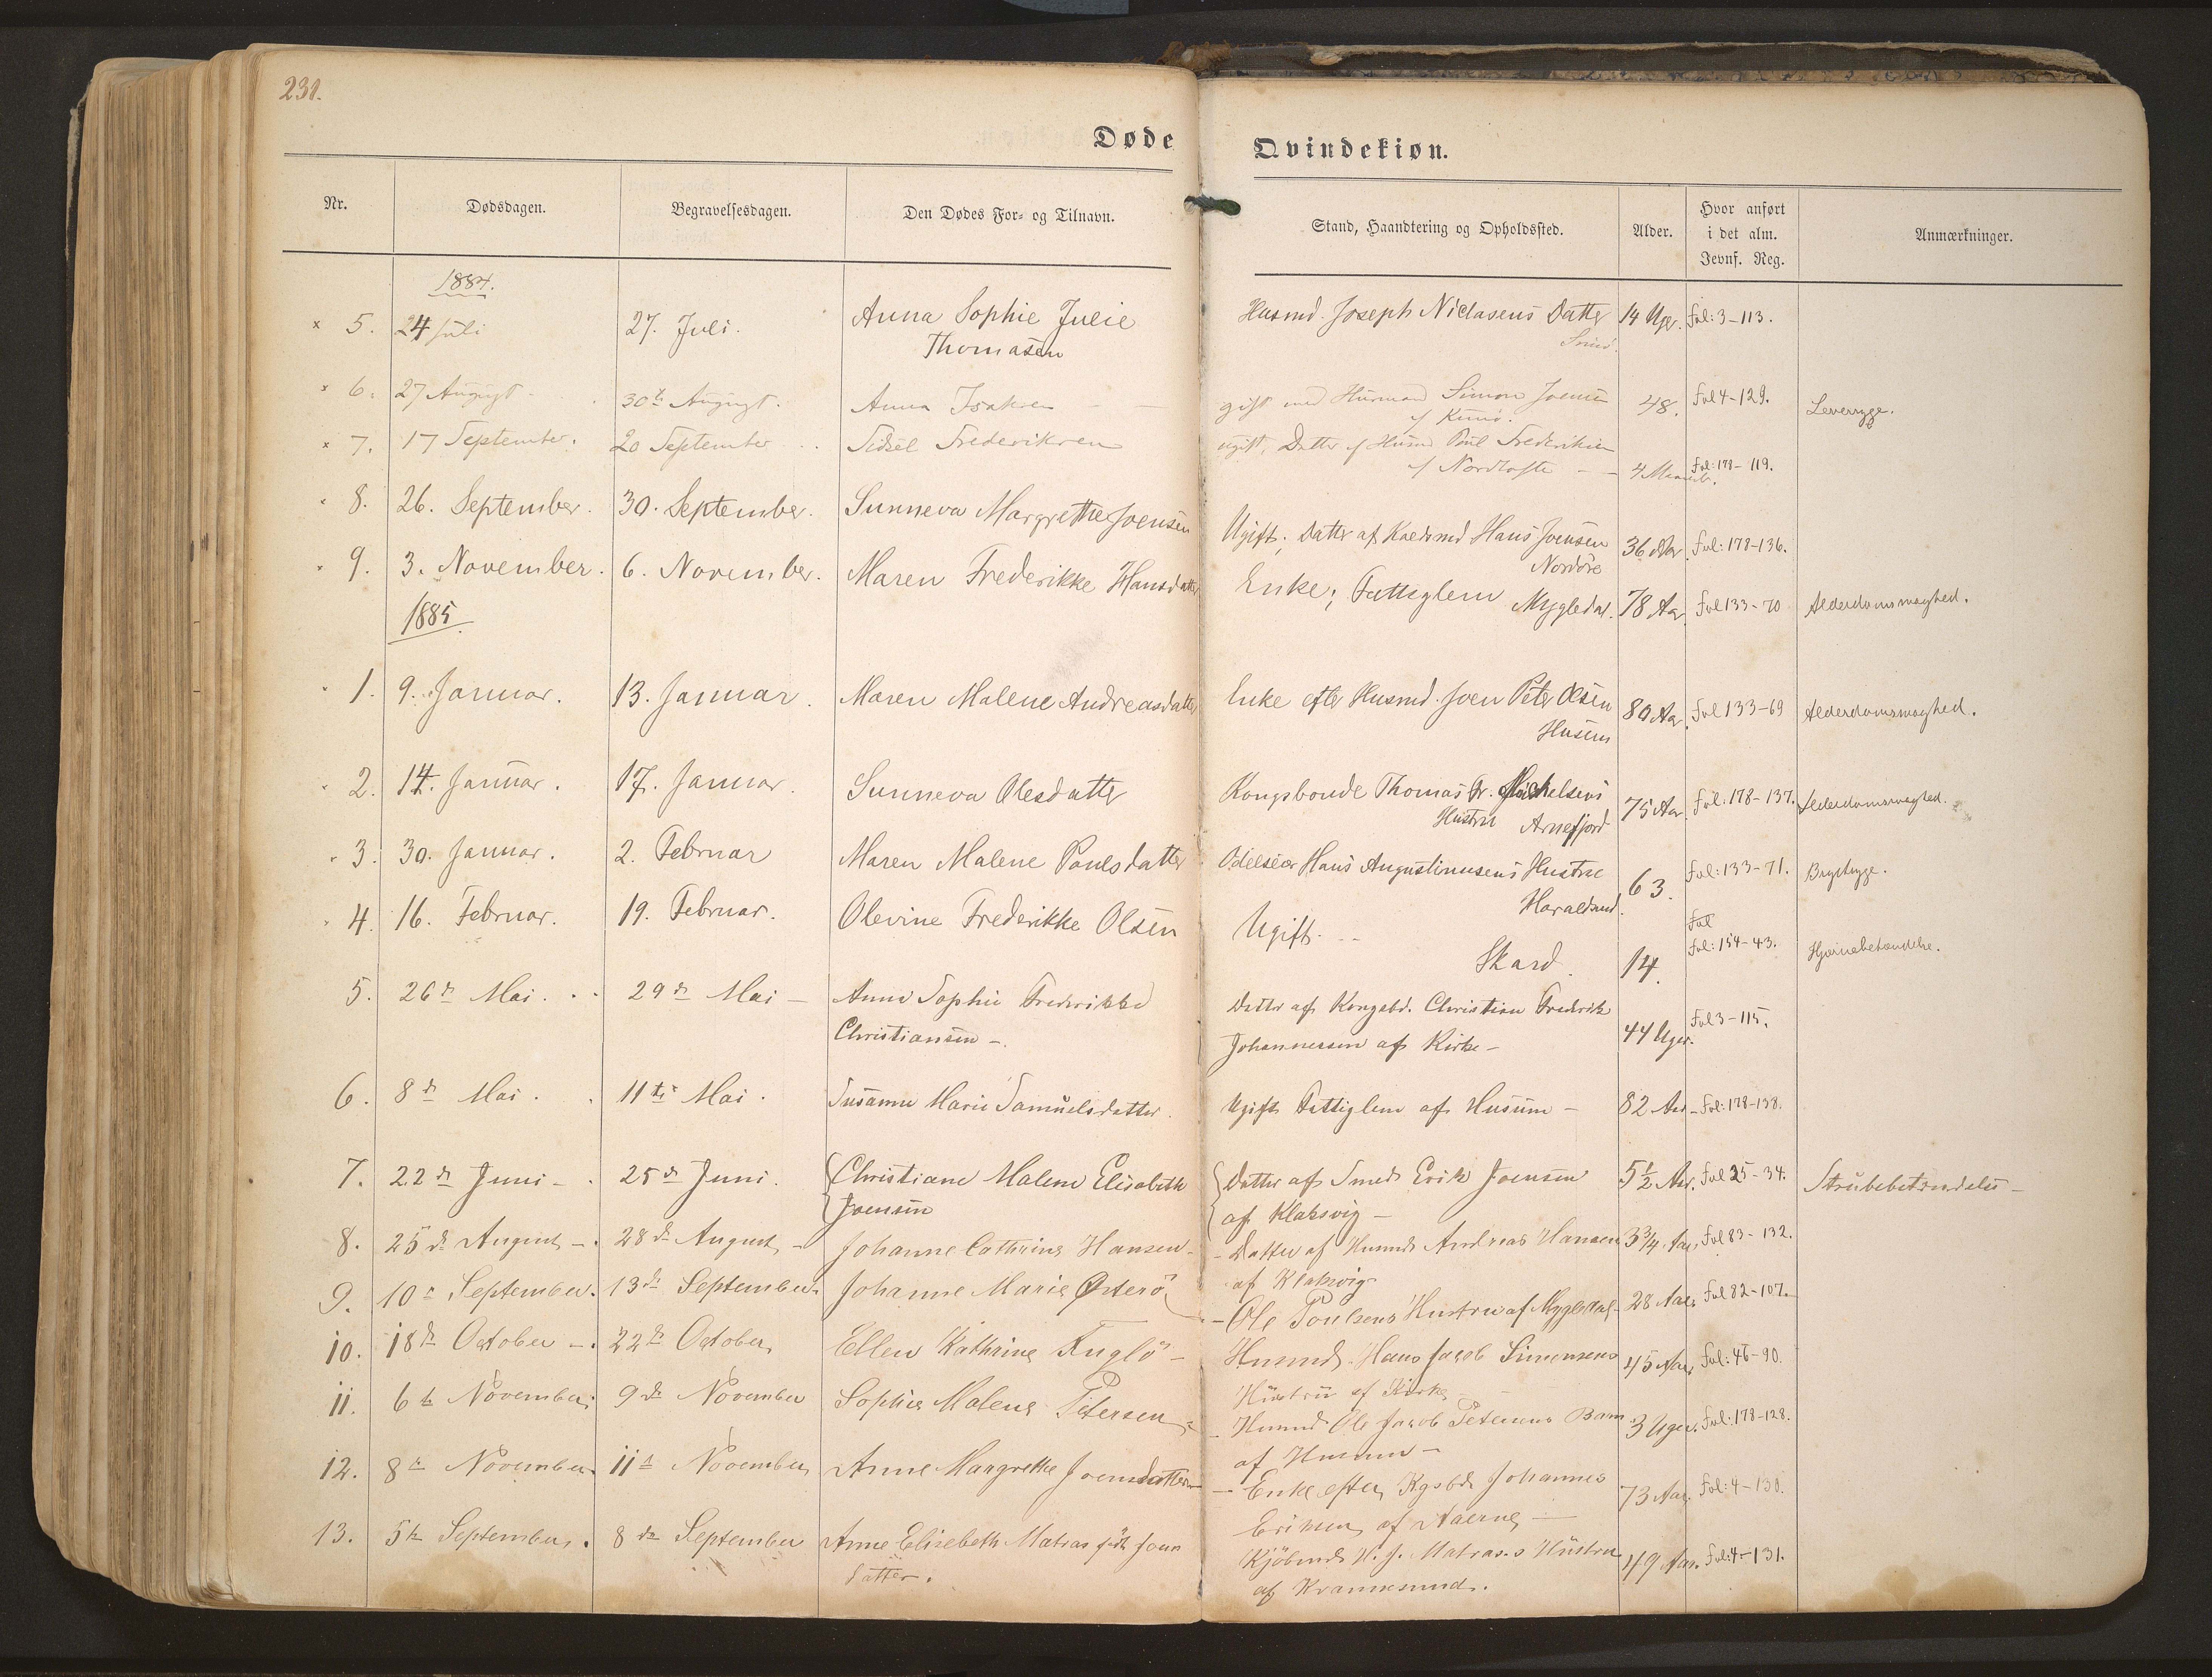 231.
Døde Qvindekiøn.
Nr. Dødsdagen. Begravelsesdagen. Den Dødes For- og Tilnavn. Stand, Haandtering og Opholdssted. Alder. Hvor anført i det alm. Jevnf. Reg. Anmærkninger.
1884.
× 5. 24 Juli 27. Juli. Anna Sophie Julie Husmd. Joseph Niclasens Datter 14 Uger. fol: 3-113.
Thomasen
× 6. 27 August 30te August. Anna Isaksen gift med Husmand Simon Joensen 48. fol 4-129. Leversyge.
af Kunø.
× 7. 17 September. 20 September Sidsel Frederiksen ugift, Datter af Husmd Poul Frederiksen
af Nordtofte 4 Maaned. fol: 178-119.
8. 26. September. 30. September. Sunneva Margrethe Joensen Ugift; Datter af Hans Joensen 36 Aar fol: 178-136.
Nordöre
9. 3. November. 6. November. Maren Frederikke Hansdatter Enke; Fattiglem Mygledal. 78 Aar fol 133-70 Alderdomssvaghed.
1885.
1. 9. Januar. 13. Januar. Maren Malene Andreasdatter Enke efter Husmd. Joen Peter Olsen 80 Aar. fol 133-69 Alderdomssvaghed.
Husum
2. 14. Januar. 17. Januar. Sunneva Olesdatter Kongsbonde Thomas Fr. Michelsens 75 Aar. fol: 178-137. Alderdomssvaghed.
Hustru Arnefjord
3. 30. Januar. 2. Februar Maren Malene Poulsdatter Odelseier Hans Augustinusens Hustru 63. fol: 133-71. Brystsyge.
Haraldsund.
4. 16. Februar. 19. Februar. Olevine Frederikke Olsen Ugift. fol
Skard. 14. fol: 154-43. Hjernebetændelse.
5. 26de Mai. 29de Mai Anne Sophie Frederikke Datter af Kongsbd. Christian Fredrik fol 3-115.
Christiansen Johannessen af Kirke 44 Uger.
6. 8de Mai. 11te Mai. Susanne Marie Samuelsdatter. Ugift Fattiglem af Husum 82 Aar fol: 178-138.
7. 22de Juni 25de Juni. Christiane Malene Elisabeth Datter af Smed Erik Joensen 5½ Aar. fol 25-34. Strubebetændelse
Joensen af Klaksvig
8. 25de August 28de August Johanne Cathrine Hansen Datter af Husmd Andreas Hansen 3¾ Aar. fol 83-132.
af Klaksvig
9. 10 September. 13de September. Johanne Marie Østerö Ole Poulsens Hustru af Mygledal 28 Aar fol 82-107.
10. 18de October 22de October Ellen Kathrine Fuglö Husmd. Hans Jacob Simonsens 45 Aar fol: 46-90.
Hustru af Kirke
11. 6te November 9de November Sophie Malene Petersen Husmd Ole Jacob Petersens Barn 3 Uger. fol: 178-128.
af Husum
12. 8de November 11te November Anne Margrethe Joensdatter Enke efter Kgsbd. Johannes 73 Aar. fol: 4-130.
Eriksen af
13. 5te September. 8de September Anne Elisebeth Matras född Joens Kjöbmd H. J. Matras.s Hustru 49 Aar. fol: 4-131.
datter. af Krannesund.